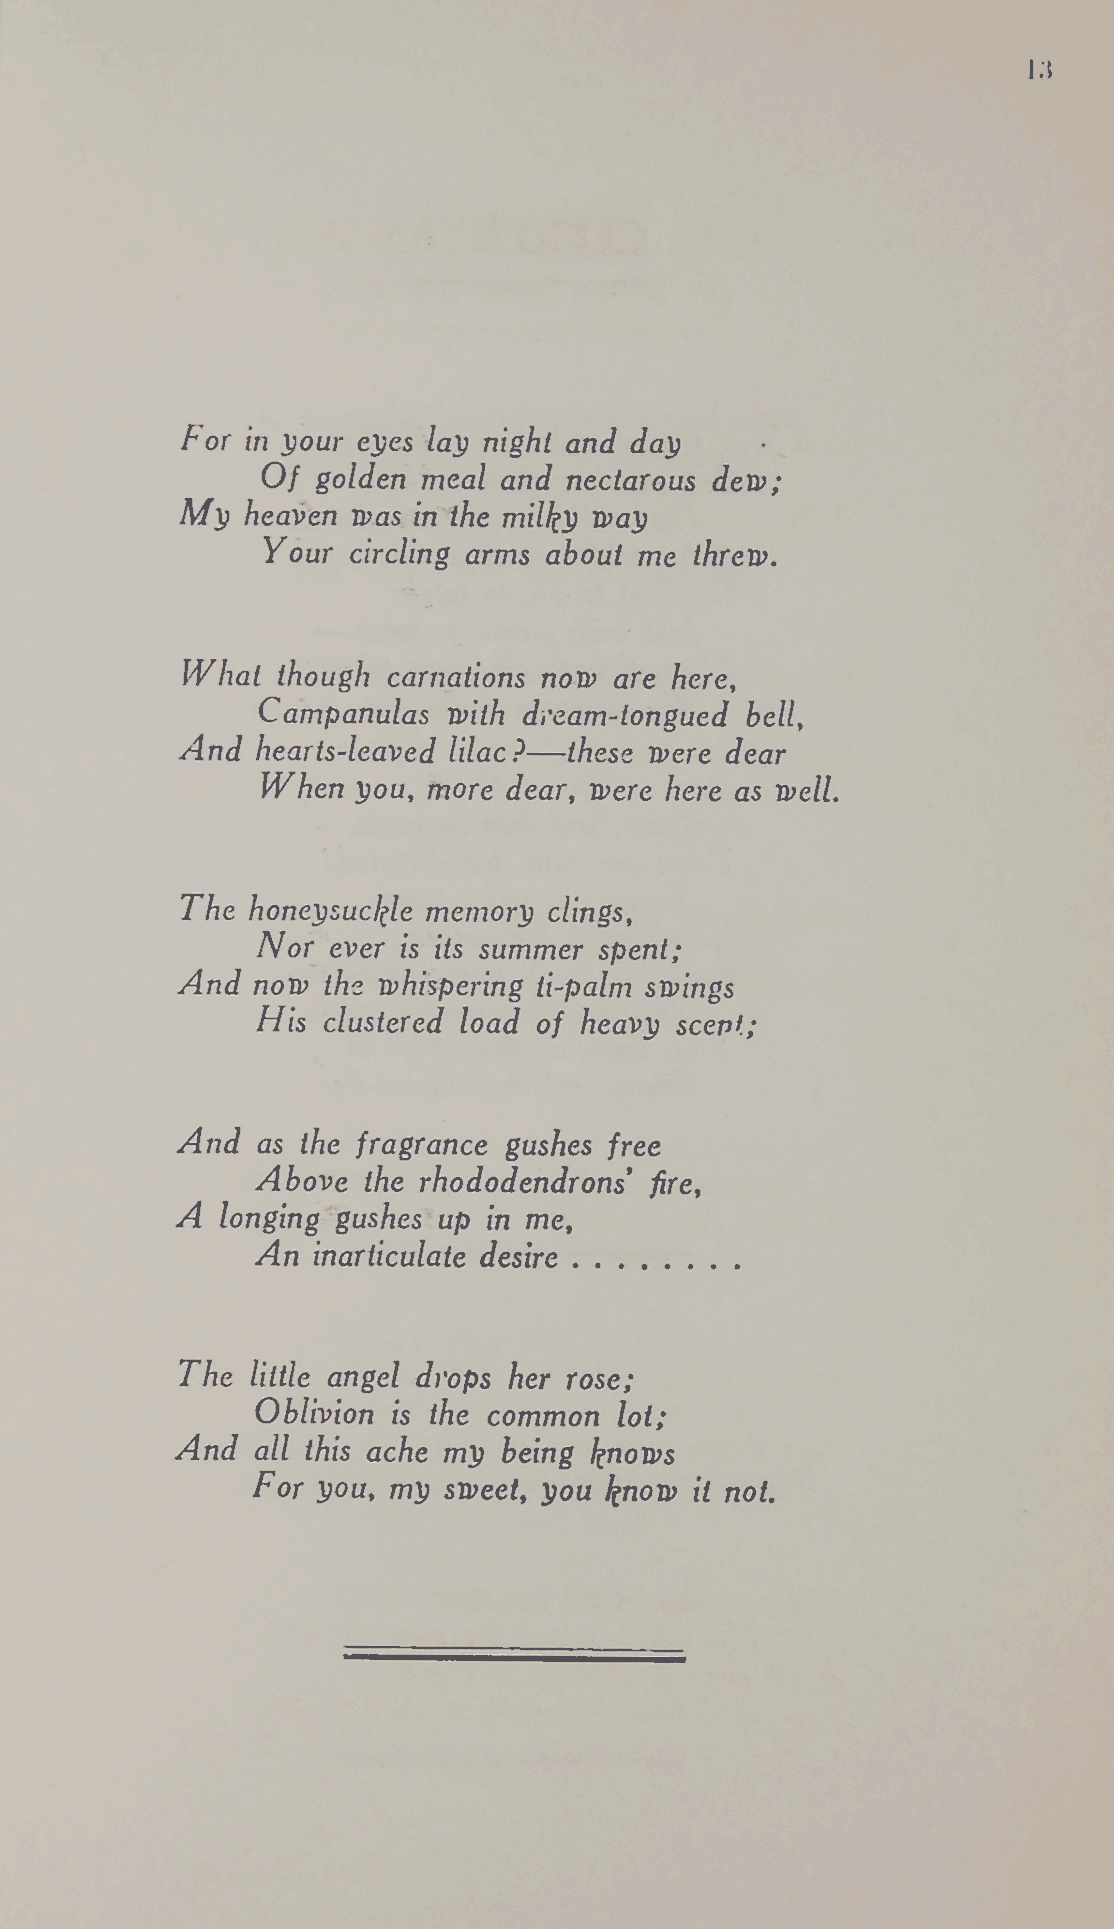 13
For in your eyes lay night and day
Of golden meal and nectarous dew;
My heaven was in the milky way
Your circling arms about me threw.
What though carnations now are here,
Campanulas with dream-tongued bell,
And hearts-leaved lilac?—these were dear
When you, more dear, were here as well.
The honeysuckle memory clings,
Nor ever is its summer spent;
And now the whispering ti-palm swings
His clustered load of heavy scent;
And as the fragrance gushes free
Above the rhododendrons' fire,
A longing gushes up in me,
An inarticulate desire . . . . . . . .
The little angel drops her rose;
Oblivion is the common lot;
And all this ache my being knows
For you, my sweet, you know it not.